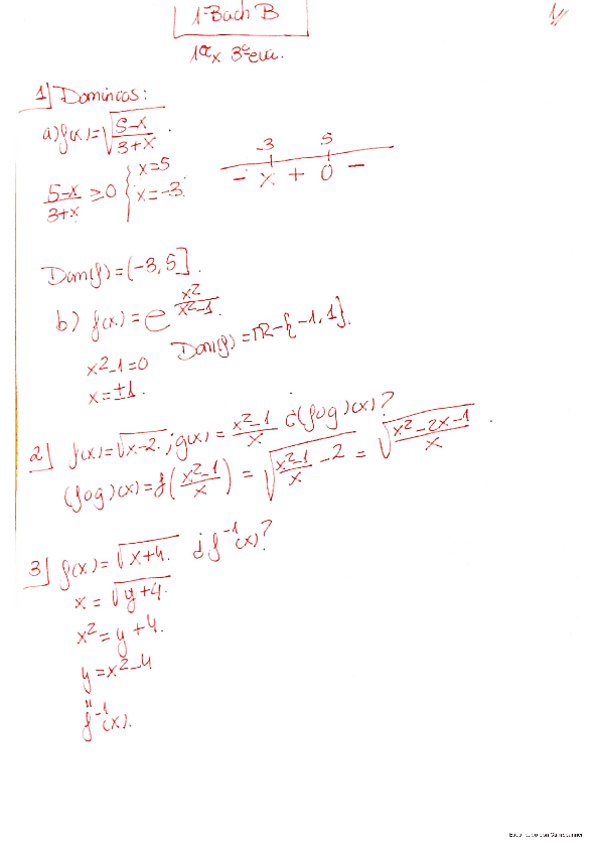 1ºBach B
1ºex 3ªeva.
1] Dominios:
a) f(x)=√((5-x)/(3+x)).
(5-x)/(3+x) ≥0 { x=5 x=-3.
-3 5
- x + 0 -
Dom(f)=(-3,5].
b) f(x)=e^(x²/(x²-1)).
x²-1=0
x=±1.
Dom(f)=ℝ-{-1,1}.
2] f(x)=√(x-2.); g(x)=(x²-1)/x ¿(fog)(x)?
(fog)(x)=f((x²-1)/x) = √((x²-1)/x -2) = √((x²-2x-1)/x).
3] f(x)=√(x+4.) ¿f⁻¹(x)?
x=√(y+4.)
x²=y+4.
y=x²-4
"
f⁻¹(x).